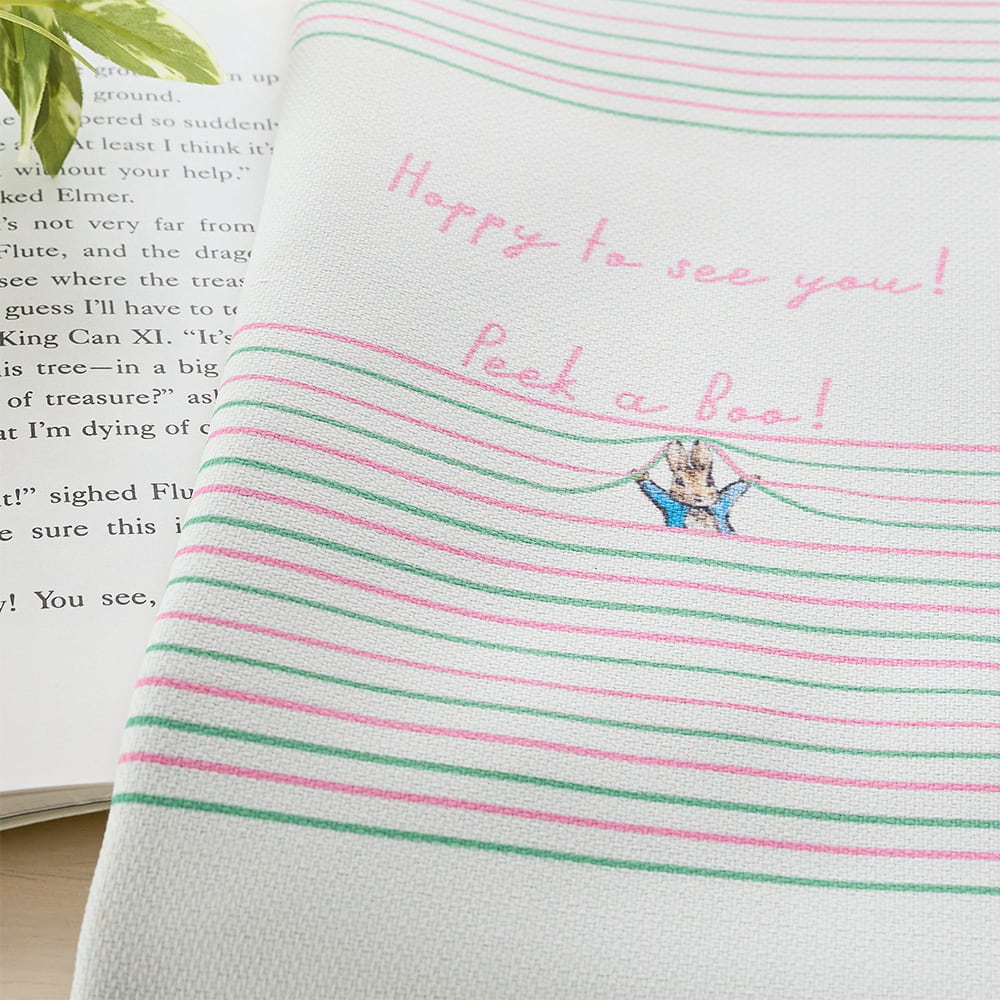 up
ground.
so suddenly
At least I think it's
without your help.”
ked Elmer.
's not very far from
Flute, and the
see where the
guess I'll have to
King Can XI. “It's
is tree—in a big
of treasure?”
at I'm dying of
t!” sighed
sure this
y! You see,
Hoppy to see you!
Peek a Boo!